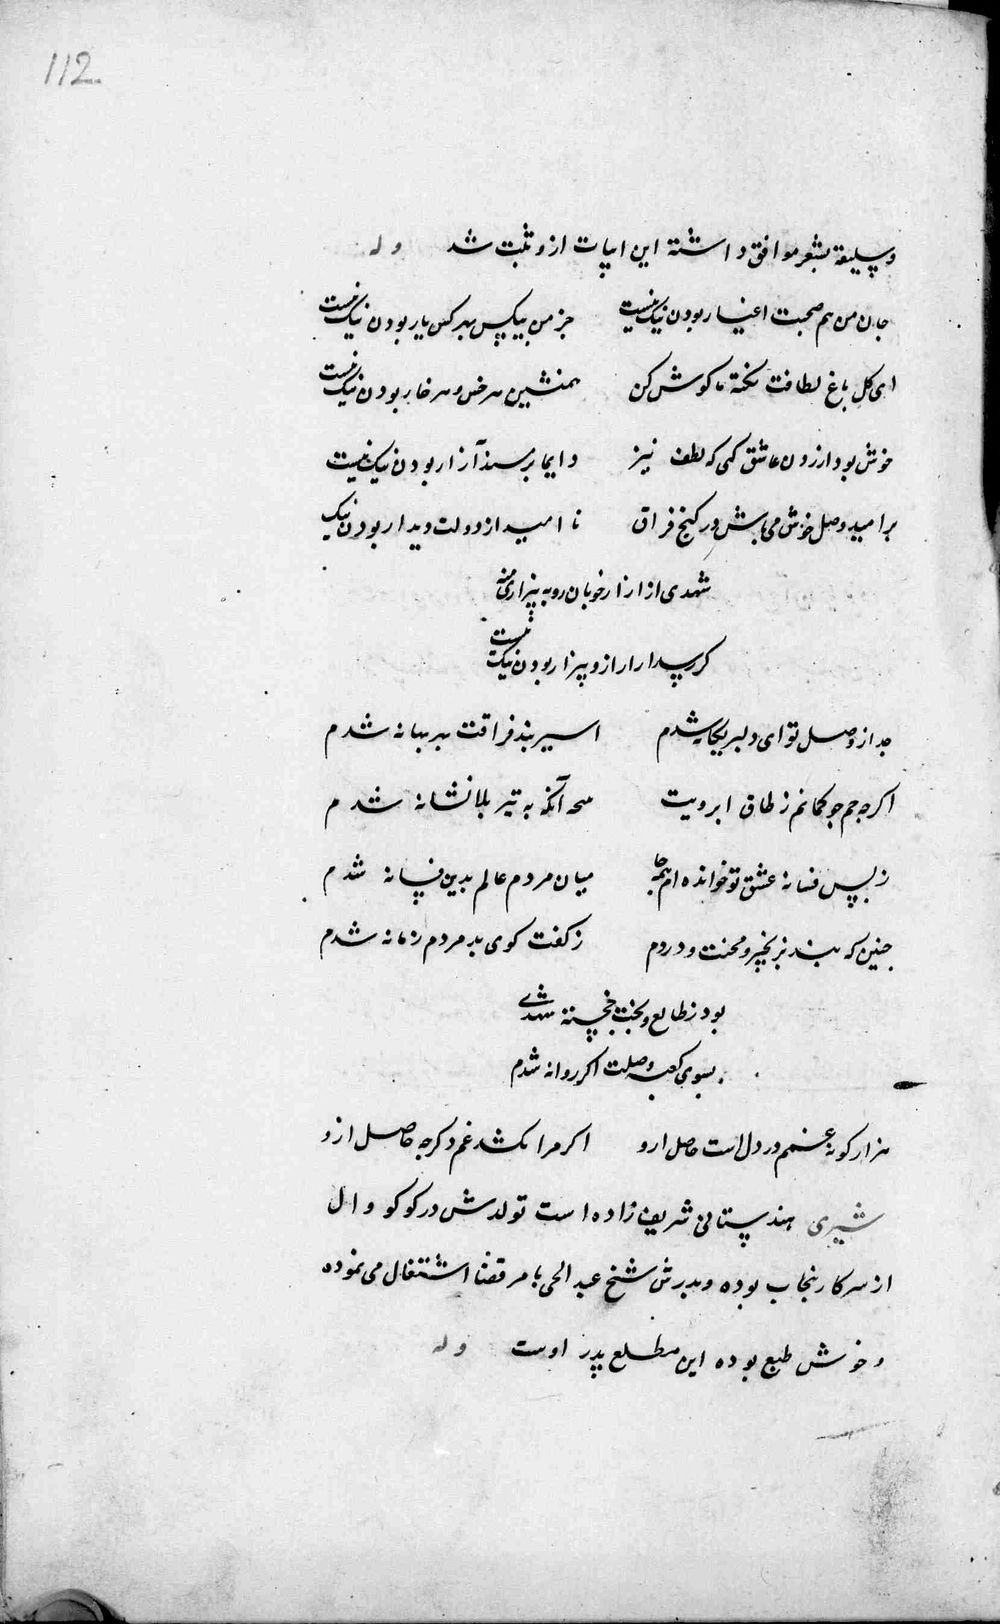 112
وسلیقهٔ بشعر موافق داشته این ابیات ازو ثبت شد وله
جان من هم صحبت اغیار بودن نیک نیست جز من بیکس بهر کس یار بودن نیک نیست
ای کل باغ لطافت نکتهٔ ما کوش کن همنشین هر خس و هر خار بودن نیک نیست
خوش بود ازردن عاشق کهی که لطف نیز دایما بر مسند آزار بودن نیک نیست
بر امید وصل خوش می باش در کنج فراق نا امید از دولت دیدار بودن نیک
شهدی از ازار خوبان رو به بیزاری منه
نیست
کر رسد ازار ازو بیزار بودن نیک
جدا ز وصل تو ای دلبر یکانه شدم اسیر بند فراقت بهر بهانه شدم
اکرچه خم جو کمانم ز طاق ابرویت آنکه به تیر بلا نشانه شدم
ز بس فسانه عشق تو خوانده ام همه جا میان مردم عالم بدین فسانه شدم
جنین که بند بزنجیر و محنت و دردم ز کفت کوی بد مردم زمانه شدم
بود ز طالع و بخت خجسته شهدی
بسوی کعبه وصلت اکر روانه شدم
هزار کونه غمم در دل است حاصل ازو اکر مرا نکشد غم دکر جه حاصل ازو
شیری هندستانی شریف زاده است تولدش در کوکووال
از سرکار پنجاب بوده و پدرش شیخ عبد الحی بامر قضا اشتغال می نموده
و خوش طبع بوده این مطلع پدر اوست وله